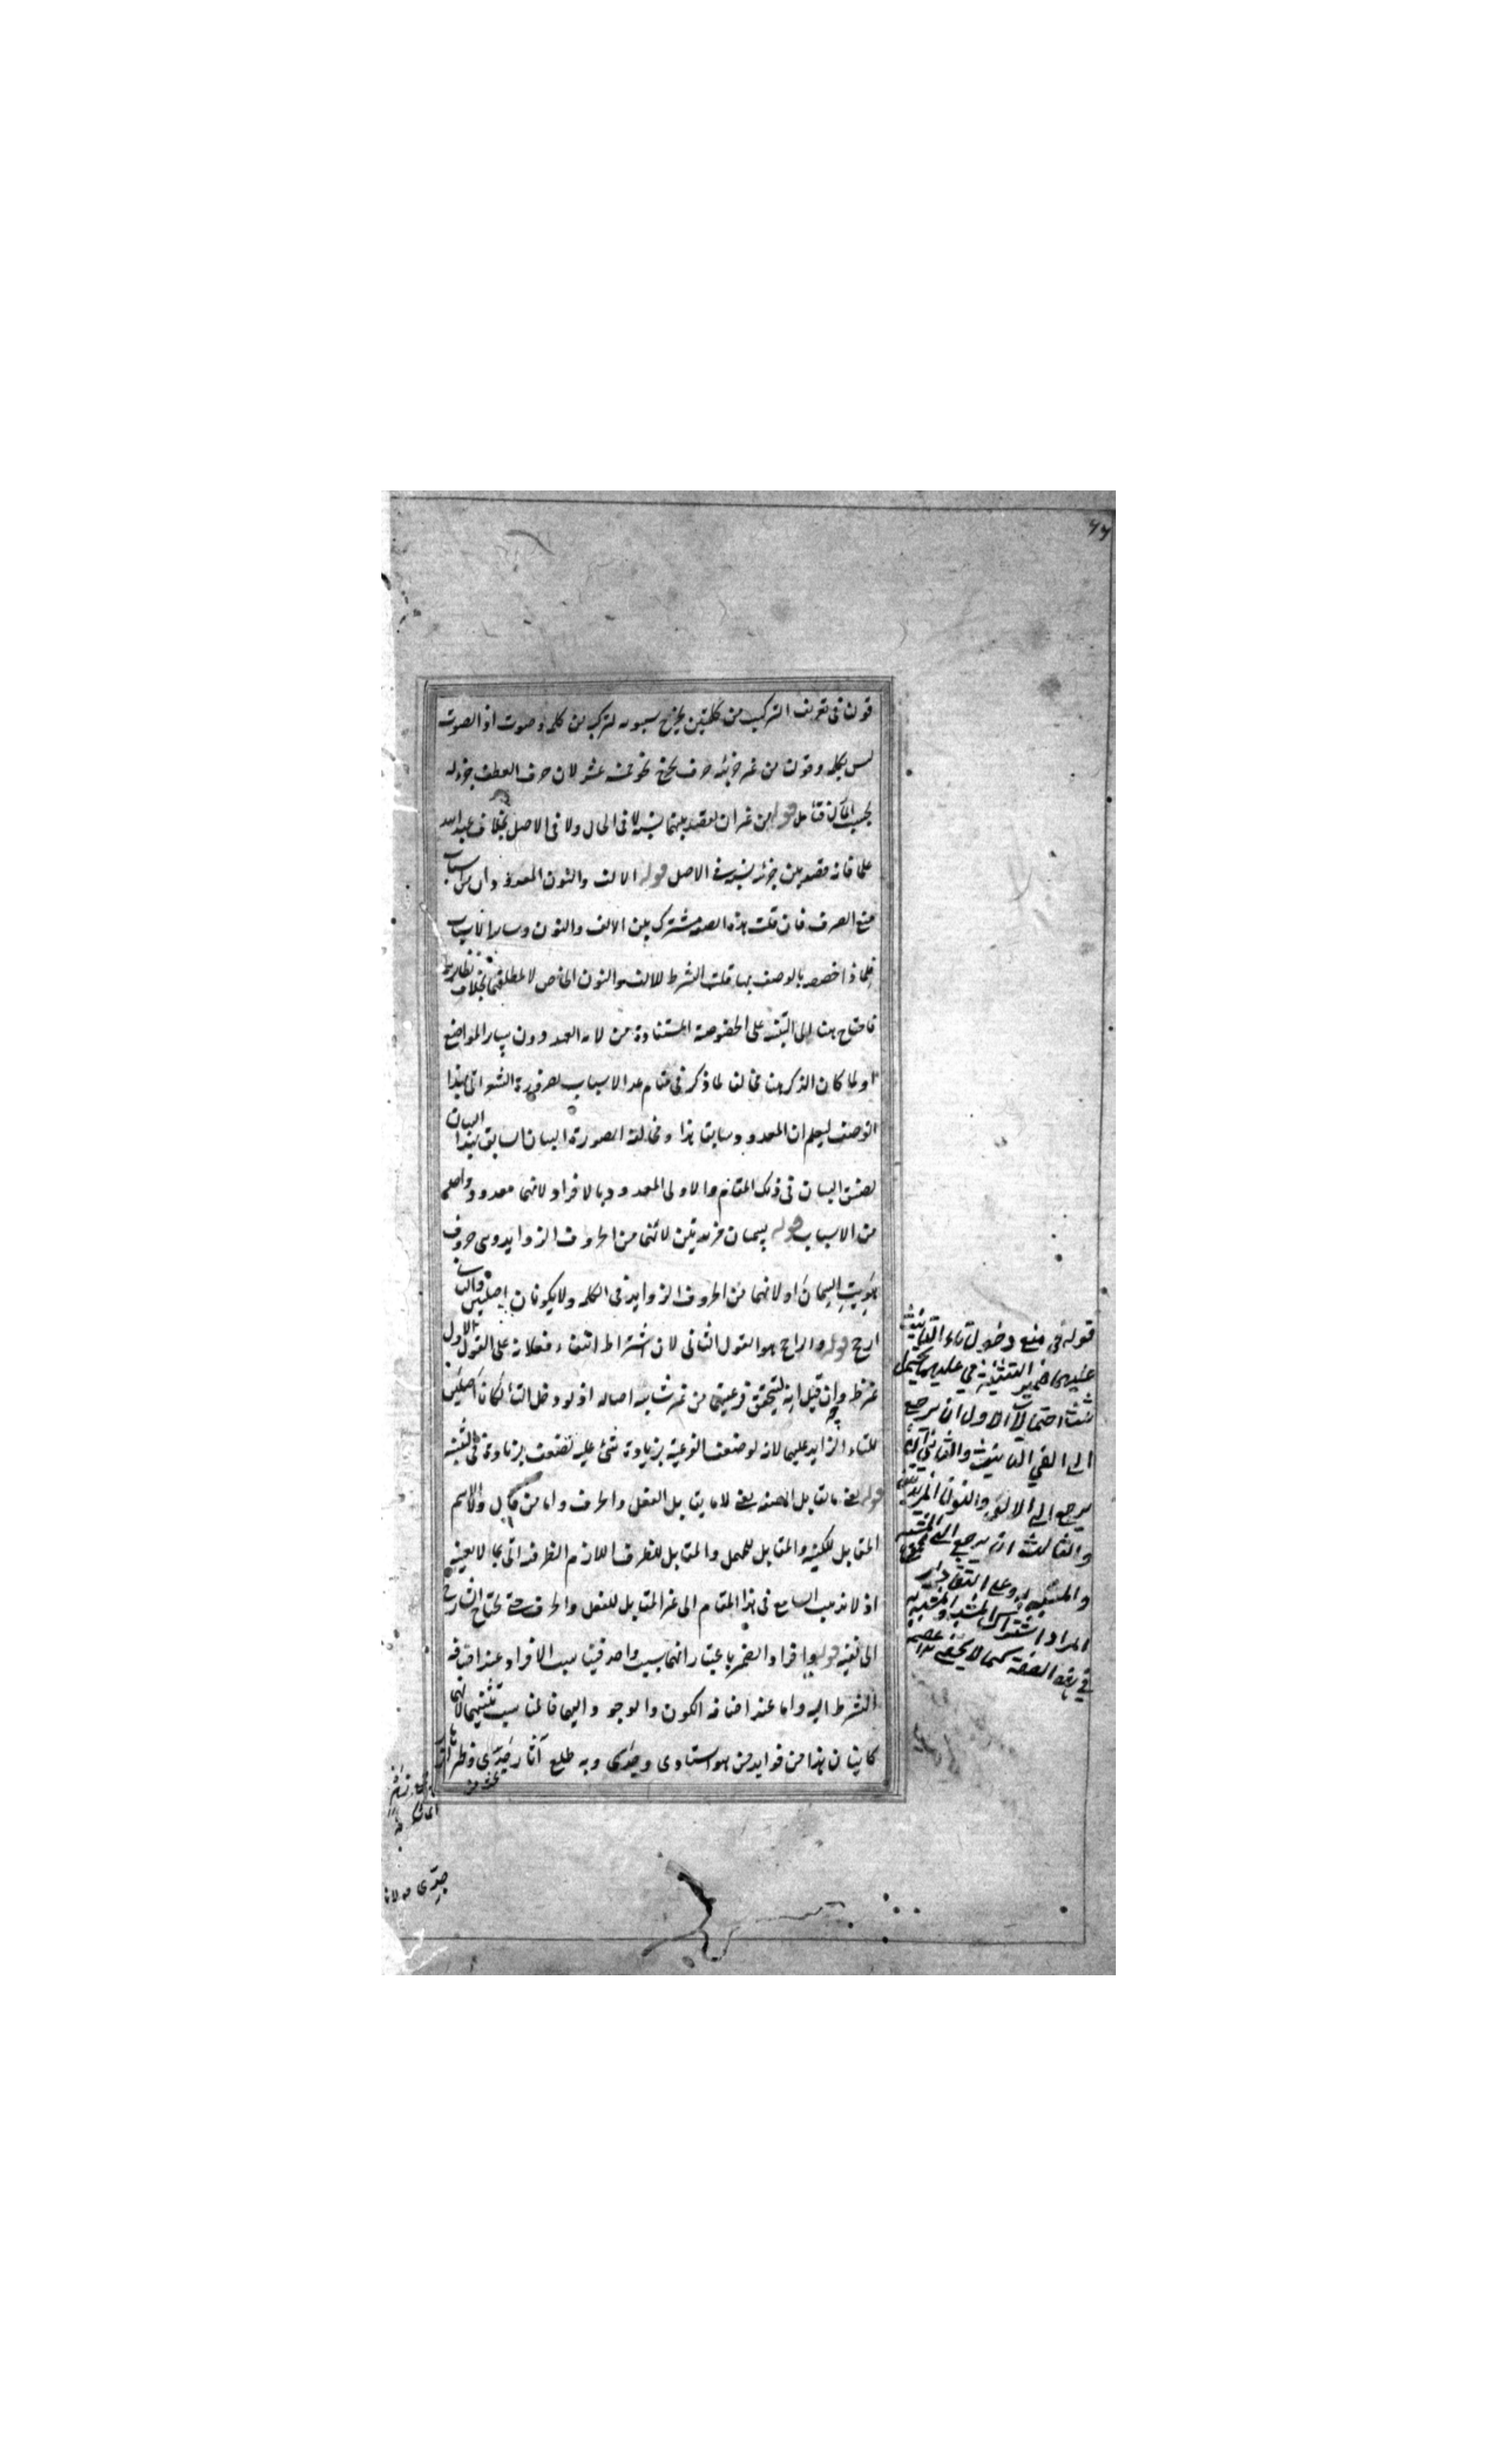 ٦٦
قولنا فى تعريف التركيب من كلمتين يخرج سيبويه لتركبه من كلمة وصوت اذ الصوت
ليس بكلمة وقولنا من غير جزئية حرف يخرج نحو خمسة عشر لان حرف العطف جزء له
بحسب المآل فتأمل قوله من غير ان يقصد بينهما نسبة لا فى الحال ولا فى الاصل بخلاف عبد الله
علما فانه قصد بين جزئيه نسبة فى الاصل قوله الالف والنون المعدودتان من اسباب
منع الصرف فان قلت هذه الصفة مشترك بين الالف والنون وسائر الاسباب
فلماذا خصص بالوصف بها قلت الشرط للالف والنون الخاص لا لمطلقهما بخلاف نظائره
فاحتاج هنا الى التنبيه على الخصوصية المستفادة من لام العهد دون سائر المواضع
او لما كان الذكر هنا مخالفا لما ذكر فى مقام عد الاسباب لضرورة الشعر اتى بهذا
الوصف ليعلم ان المعدود سابقا هذا ومخالفة الصورة البيان السابق لهذا البيان
لضيق البيان فى ذلك المقام والاولى المعدود بالافراد لانهما معدود واحد
من الاسباب قوله يسميان مزيدتين لانهما من الحروف الزوايد وهى حروف
هويت السمان او لانهما من الحروف الزوايد فى الكلمة ولا يكونان اصليتين والثانى
ارجح قوله والراجح هو القول الثانى لان اشتراط انتفاء فعلانة على القول الاول
غير ظ وان قيل انه ليتحقق فرعيتهما من غير شائبة اصالة اذ لو دخل التاء لكانا اصلين
للتاء الزايد عليهما لانه لو ضعف الفرعية بزيادة شئ عليه لضعف بزيادة فى التثنية
قوله يعنى ما يقابل الصفة يعنى لا ما يقابل الفعل والحرف واما من قال والاسم
المقابل للكنية والمقابل للمهمل والمقابل للظرف اللازم الظرفية اتى بما لا يعنيه
اذ لا يذهب السامع فى هذا المقام الى غير المقابل للفعل والحرف حتى يحتاج الشارح
الى نفيه قوله وافراد الضمير باعتبار انهما سبب واحد فيناسب الافراد عند اضافة
الشرط اليه واما عند اضافة الكون والوجود اليهما فالمناسب تثنيتهما لانهما
كاينان هذا من فوايد من هو استادى وجدى وبه طلع آثار جدى وظهر
قوله فى منع دخول تاء التأنيث
عليهما ضمير التثنية فى عليهما يحتمل
ثلث احتمالات الاول ان يرجع
الى الفى التأنيث والثانى ان
يرجع الى الالف والنون المزيدتين
والثالث ان يرجع الى المشبه
والمشبه به وعلى التقادير
المراد اشتراك المشبه والمشبه به
فى هذه الصفة كما لا يخفى
جدى مولانا